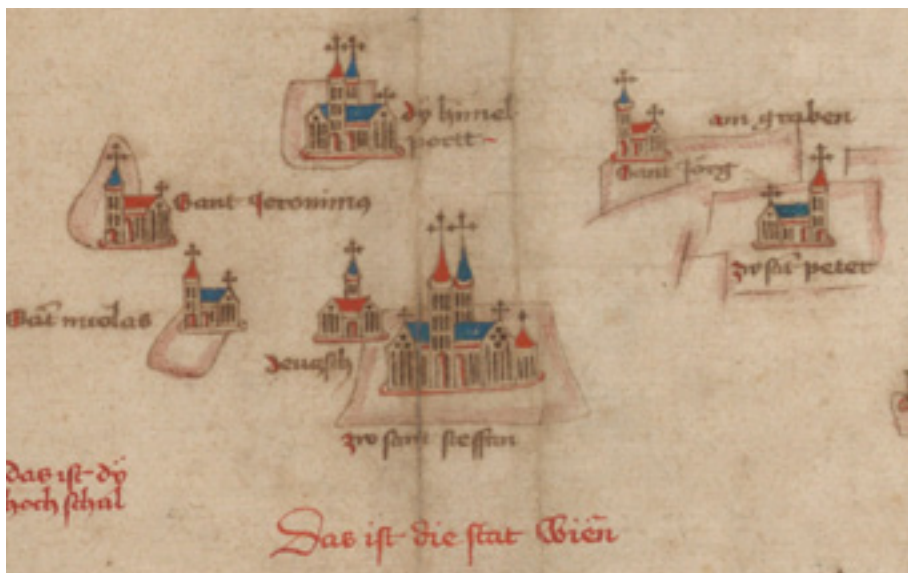 dÿ himel
portt
am graben
Sant Jorg
Sant Jeronimꝯ
zw sãt peter
Sãt nicolas
zewgsch
zw sant steffan
das ist dÿ
hoch schul
Das ist die stat Wien̄